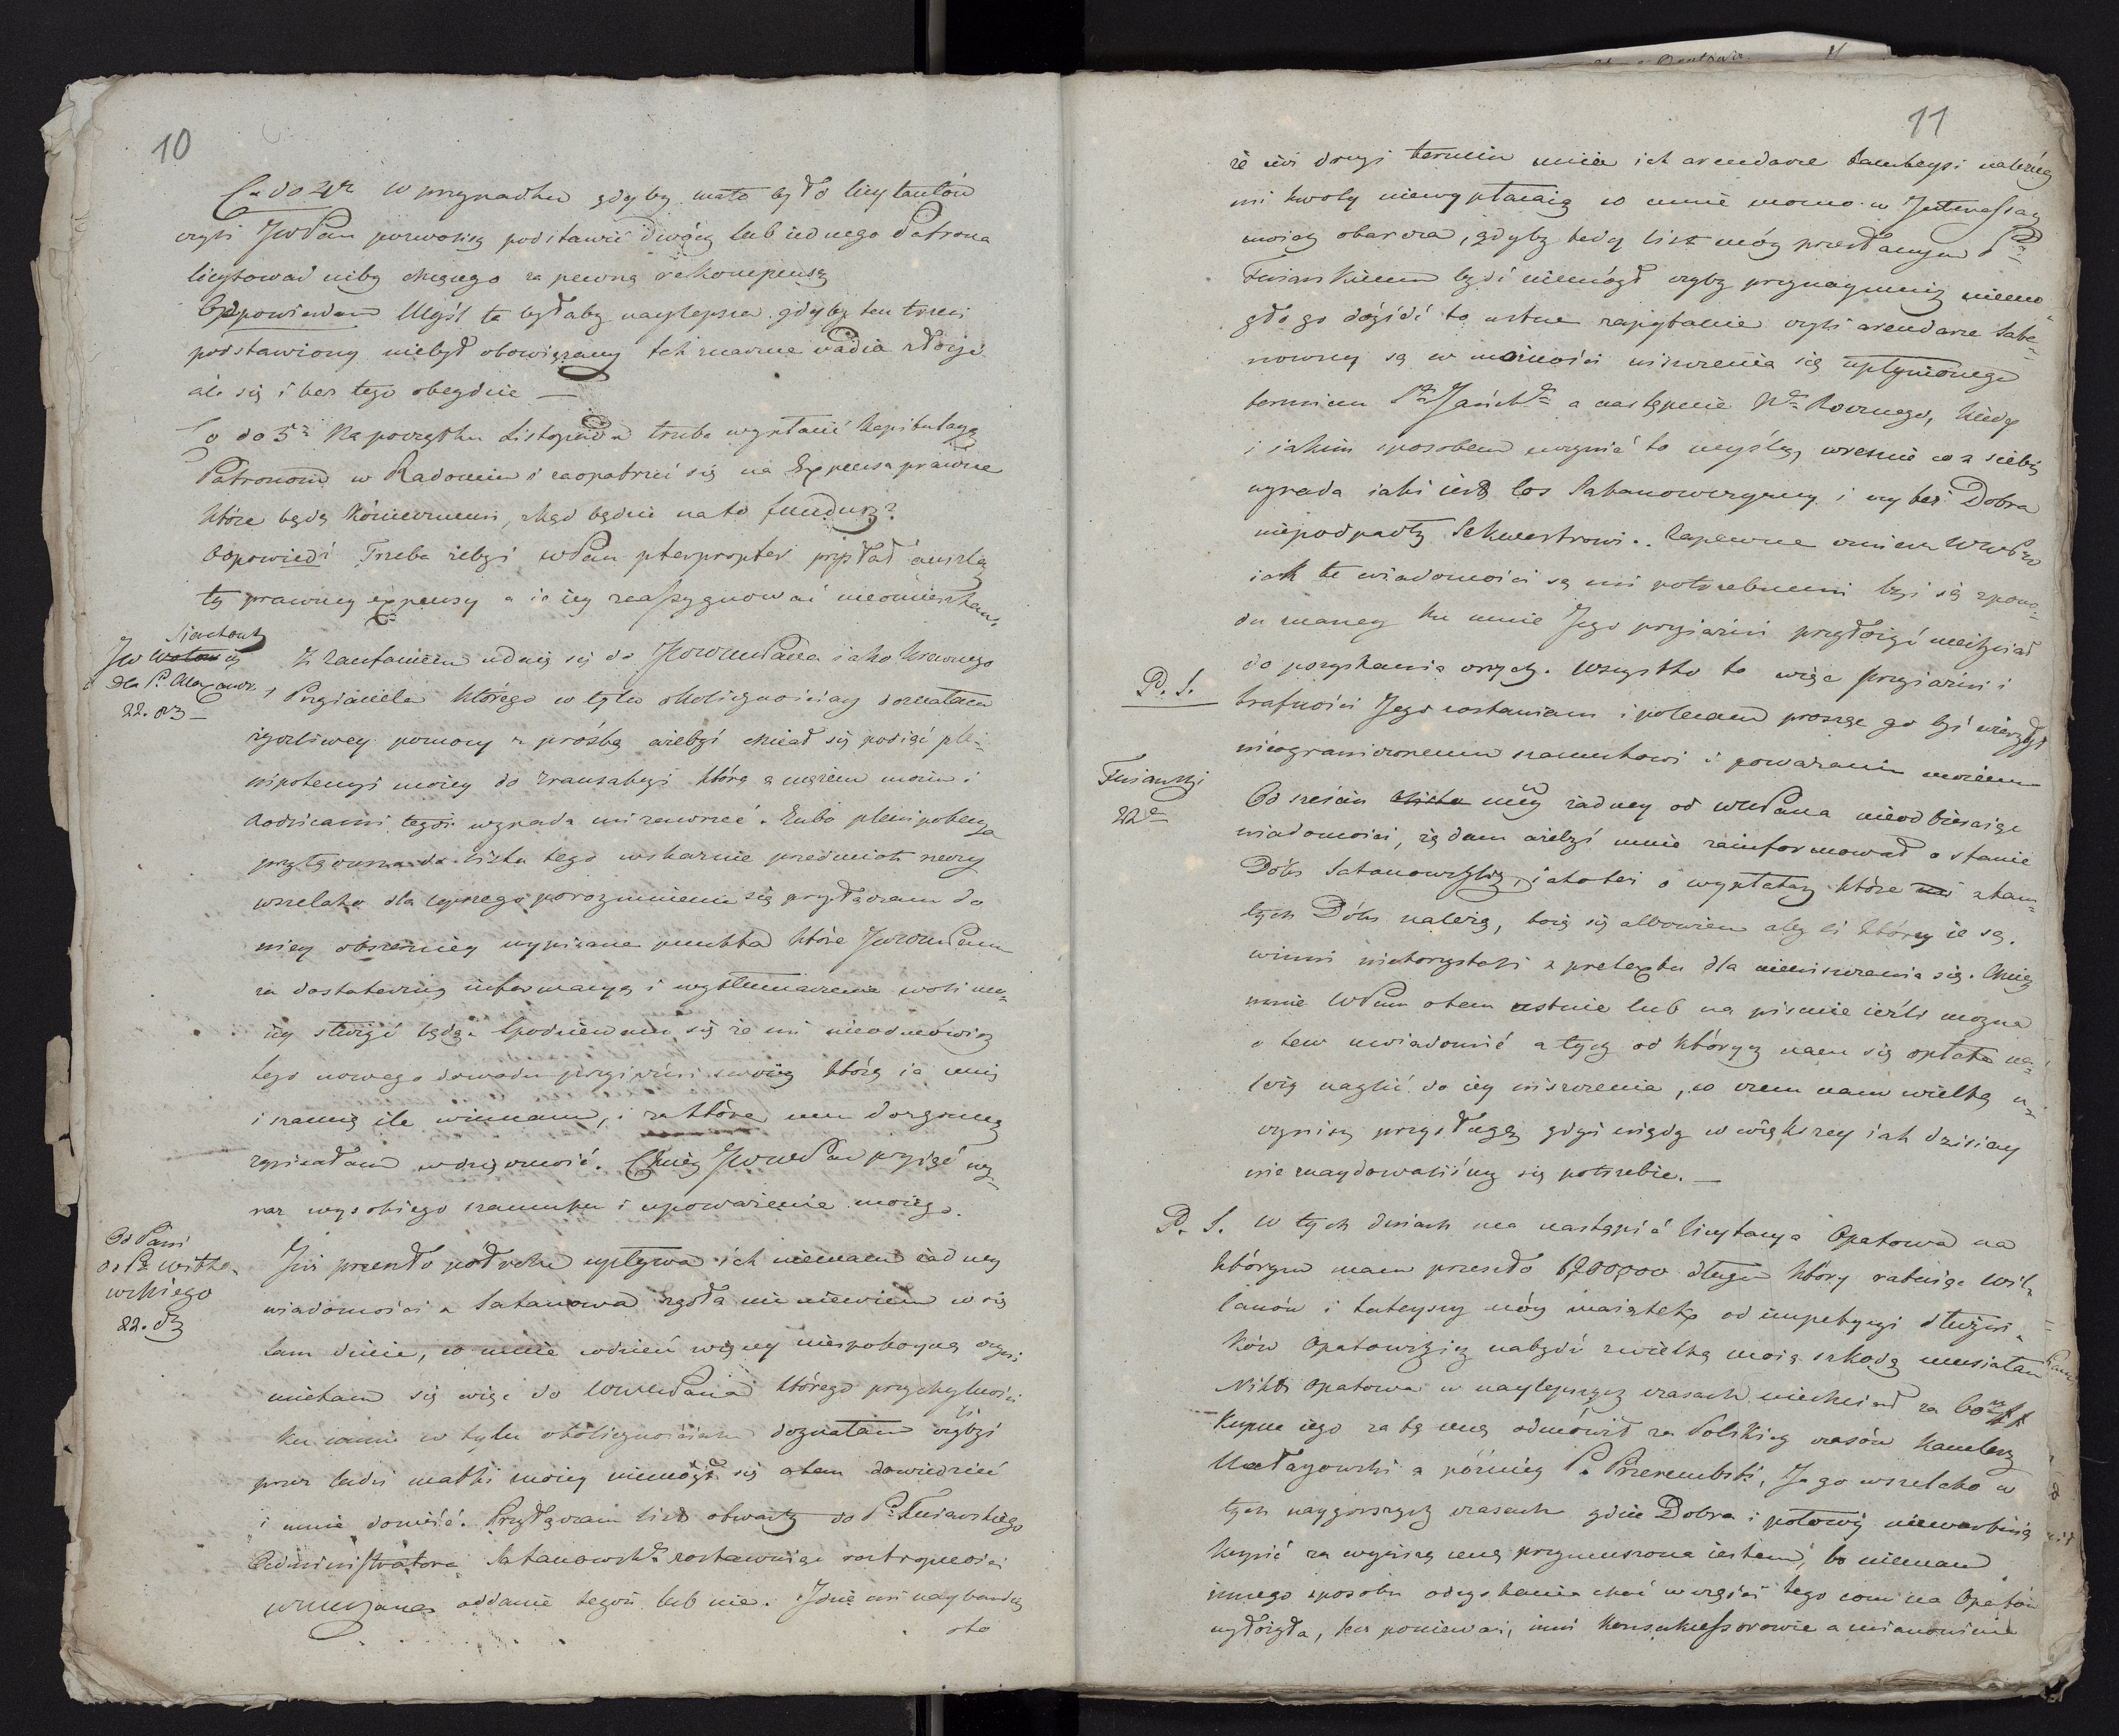 10
Co do 4te W przypadku gdyby mało było licytantów
czyli JWPan pozwolisz podstawić dwóch lub iednego Patrona
licytować niby chcącego za pewną rekompensą
Odpowiadam Myśl ta byłaby naylepsza gdyby ten trzeci
podstawiony niebył obowiązany tak znaczne vadia złożyć
ale się i bez tego obeydzie —
Co do 5te Na początku Listopada trzeba wypłacić kapitulacyą
Patronom w Radomiu i zaopatrzeć się na Expensa prawne
które będą koniecznemi, zkąd będzie na to fundusz?
Odpowiedź Trzeba żebyś WPan pterpropter przysłał
tę prawney expensy a ia iey zeassygnować nieomieszkam.
JW
Dla P. Alexandr.
22. 8br
Z zaufaniem udaię się do JWWMPana iako krewnego
i Przyiaciela którego w tylu okolicznościach doznałam
życzliwey pomocy z prośbą ażebyś chciał się podiąć ple-
nipotencyi moiey do tranzakcyi którą z mężem moim i
Rodzicami tegoż wypada mi zawrzeć. Lubo plenipotencya
przyłączona do listu tego wskaże przedmiot rzeczy
wszelako dla lepszego porozumienia się przyłączam do
niey obszerniey wypisane punkta które JWWMPanu
za dostateczną informacyą i wytłumaczenie woli mo-
iey służyć będą. Spodziewam się że mi nieodmówisz
tego nowego dowodu przyiaźni swoiey którą ia cenię
i szanuię ile winnam, i za którą mu dozgonną
zapisałam wdzięczność. Chciey JWWMPan przyiąć wy-
raz wysokiego szacunku i upoważenia moiego.
Od Pani
do P. Witko-
wskiego
22. 8br
Już przeszło pół roku upływa iak niemam żadney
wiadomości z Satanowa zgoła nic niewiem co się
tam dzieie, co mnie codzień więcey niespokoyną czyni
uciekam się więc do WWMPana którego przychylności
ku mnie w tylu okolicznościach doznałam czyliżbyś
przez ludzi matki moiey niemógł się o tem dowiedzieć
i mnie donieść. Przyłączam list otwarty do P. Fusiarskiego
Administratora Satanowsko zostawuiąc roztropności
WWMPana oddanie tegoż lub nie. Idzie mi naybardziey
oto
11
że iuż drugi termin miia iak arendarze tamteysi należney
mi kwoty niewypłacaią co mnie mocno w Interessach
moich obarcza, gdyby tedy list móy przesłanym P.
Fusiarskiemu bydź niemógł czyby przynaymniey niemo-
gło go dóyść to ustne zapytanie czyli arendarze Sata-
nowscy są w możności uiszczenia się upłynionego
terminu St Jańsko a następnie No Rocznego, kiedy
i iakim sposobem uczynić to myślą, wreszcie co z siebie
wypada iaki iest los Satanowczyzny i czy też Dobra
niepodpadły Sekwestrowi. Zapewne uznasz WWMPan
iak te wiadomości są mi potrzebnemi byś się z powo-
du znaney ku mnie Jego przyiaźni przyłożyć niechciał
do pozyskania onych. Wszystko to więc przyiaźni i
trafności Jego zostawiam i polecam prosząc go byś wierzył
nieograniczonemu szacunkowi i poważaniu moiemu
P. S.
Fusiarski
22e
Od sześciu mcy żadney od WWMPana nieodbieraiąc
wiadomości, żądam ażebyś mnie zainformował o stanie
Dóbr Satanowskich, iakoteż o wypłatach które z tam-
tych Dóbr należą, boię się albowiem aby ci którzy ie są
winni niekorzystali z pretextu dla nieuiszczenia się. Chciey
mnie WPan o tem ustnie lub na piśmie ieżli można
o tem uwiadomić a tych od których nam się opłata na-
leży naglić do iey uiszczenia, w czem nam wielką u-
czynisz przysługę gdyż nigdy w większey iak dzisiay
nie znaydowaliśmy się potrzebie. —
P. S. W tych dniach ma nastąpić licytacya Opatowa na
którym mam przeszło 1,200,000 długu który ratuiąc Wil-
lanów i tuteyszy móy maiątek od impetycyi dłużni-
ków Opatowskich nabydź z wielką moią szkodą musiałam
Nikt Opatowa w naylepszych czasach niechciał za
kupna iego za tę cenę odmówił za Polskich czasów Kanclerz
Małachowski a późniey P. Przerembski, Ja go wszelako w
tych naygorszych czasach gdzie Dobra i połowy niewartuią
kupić za wyższą cenę przymuszona iestem, bo niemam
innego sposobu odzyskania choć w części tego com na Opatów
wyłożyła, ten ponieważ, inni Konsukcessorowie a mianowicie